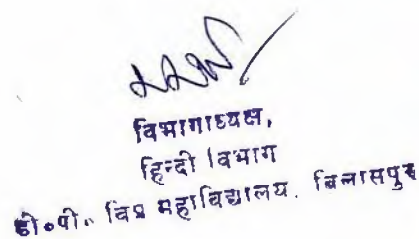 विभागाध्यक्ष,
हिन्दी विभाग
डी०पी० विप्र महाविद्यालय. बिलासपुर